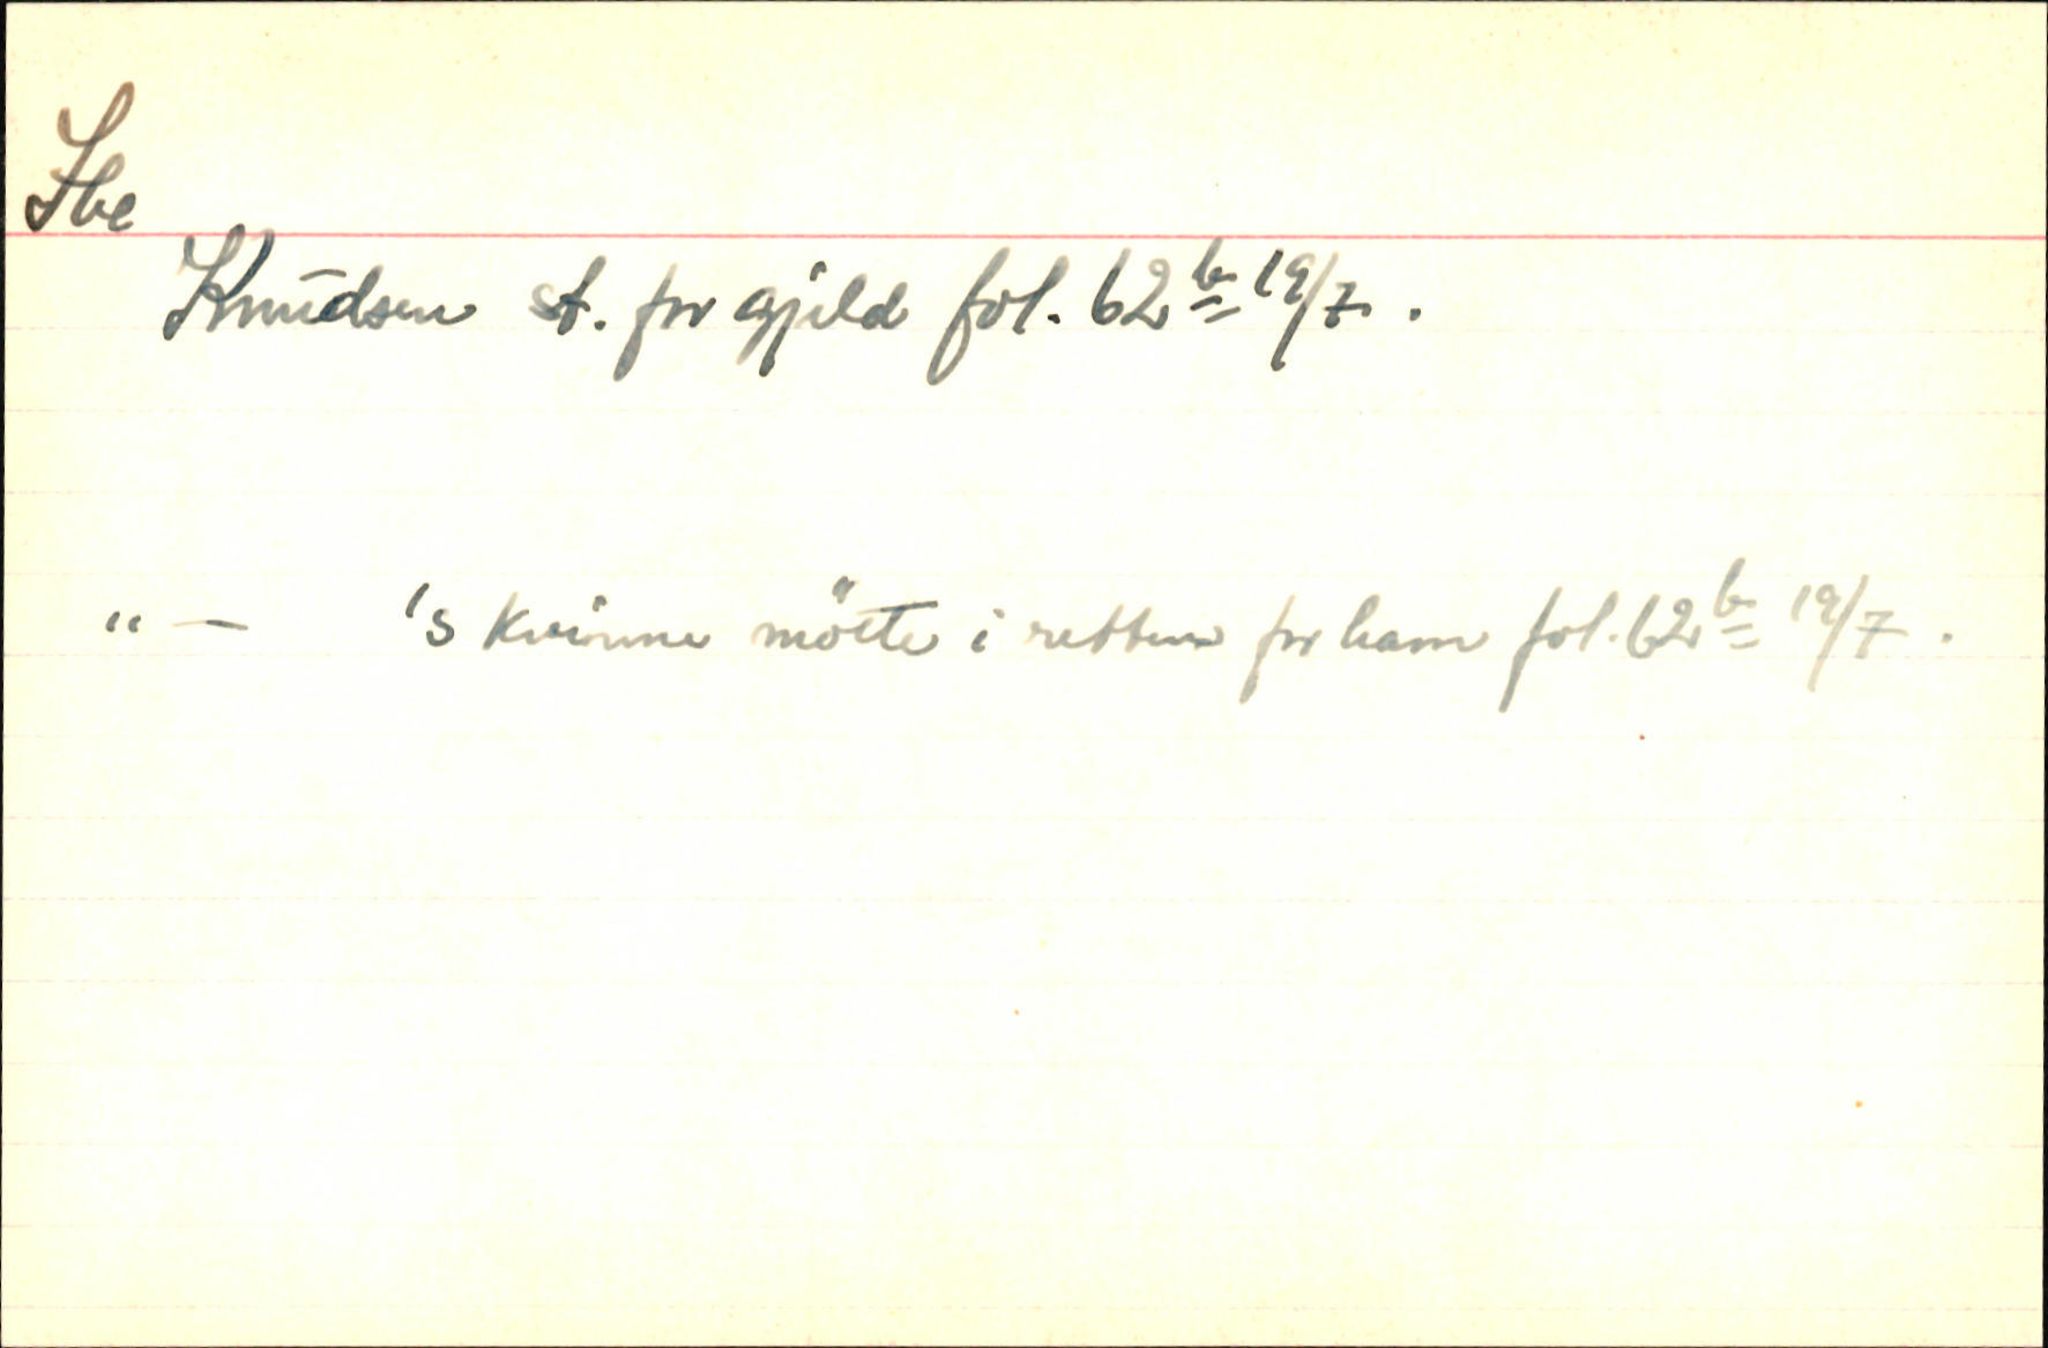 Ibe
Knudsen st. for gjeld fol. 62b 19/7.
" — 's kvinne mötte i retten for ham fol. 62b 19/7.